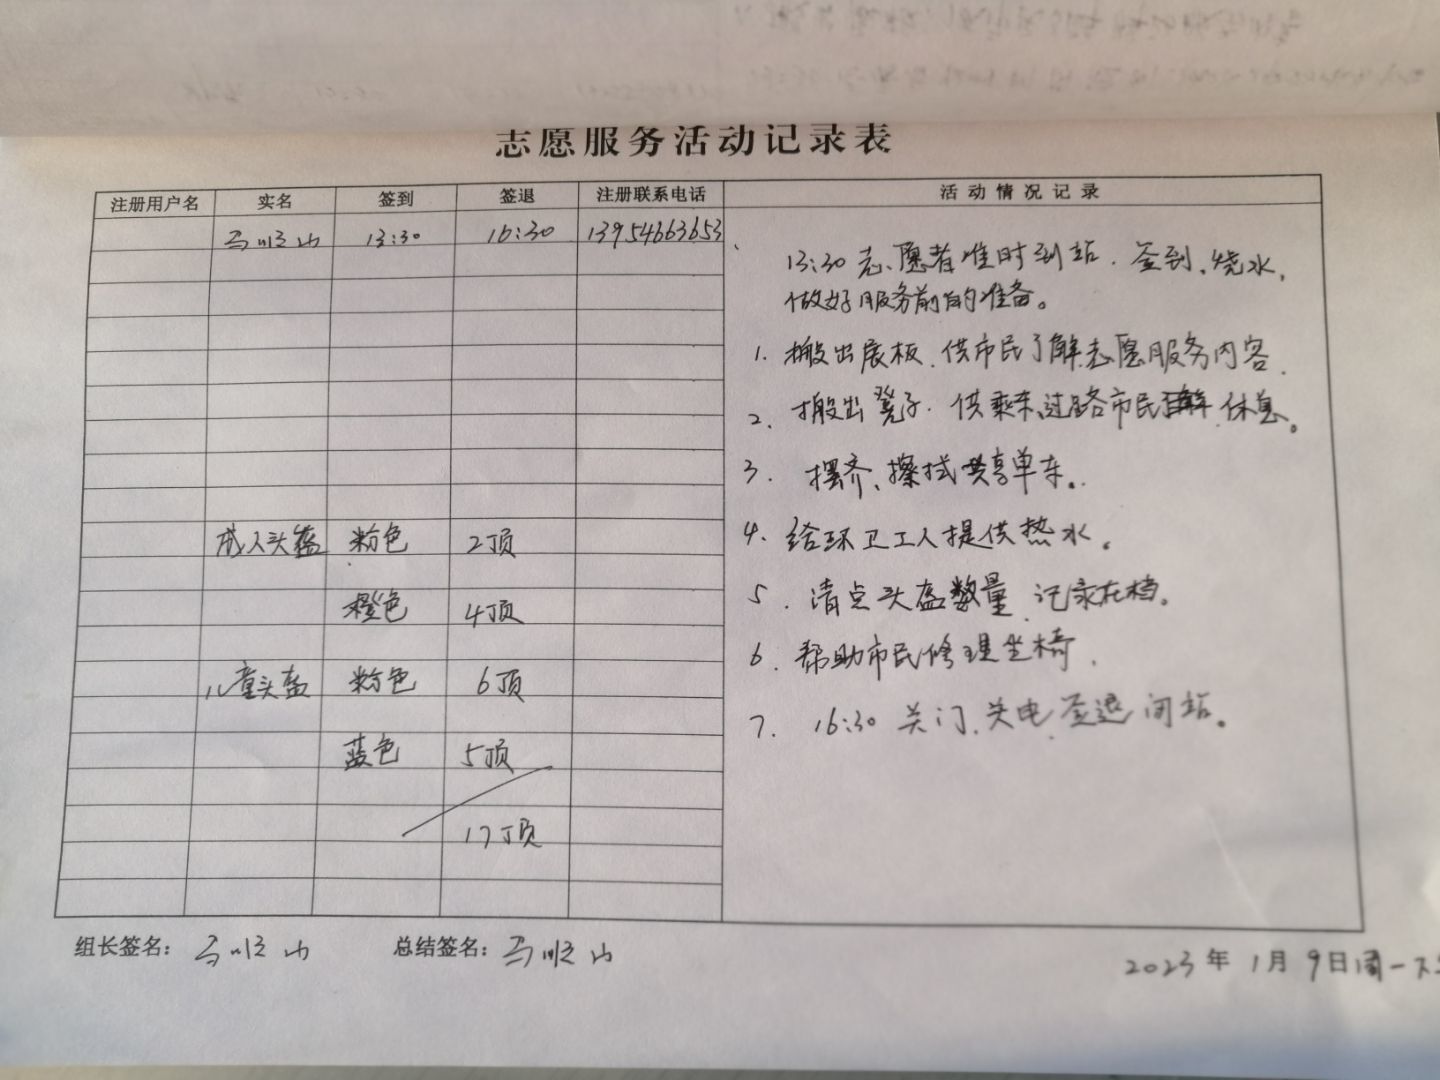 志愿服务活动记录表
注册用户名 实名 签到 签退 注册联系电话 活动情况记录
马顺山 13:30 16:30 13954663653
13:30 志愿者准时到站、签到、烧水,
做好服务前的准备。
1. 搬出展板、供市民了解志愿服务内容.
2. 搬出凳子. 供乘车、过路市民 休息。
3. 摆齐、擦拭共享单车。
4. 给环卫工人提供热水。
5. 清点头盔数量、记录在档。
6. 帮助市民修理坐椅.
7. 16:30 关门、关电、签退闭站。
成人头盔 粉色 2顶
橙色 4顶
儿童头盔 粉色 6顶
蓝色 5顶
17顶
组长签名: 马顺山 总结签名: 马顺山
2023年1月9日周一下